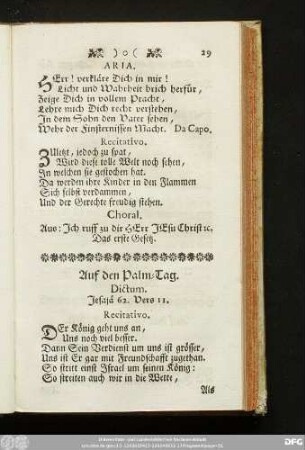 )o( 29
ARIA.
HErr! verkläre Dich in mir!
Licht und Wahrheit brich herfür,
Zeige Dich in vollem Pracht,
Lehre mich Dich recht verstehen,
In dem Sohn den Vater sehen,
Wehr der Finsternissen Macht. Da Capo.
Recitativo.
ZUletzt, jedoch zu spat,
Wird diese tolle Welt noch sehen,
In welchen sie gestochen hat.
Da werden ihre Kinder in den Flammen
Sich selbst verdammen,
Und der Gerechte freudig stehen.
Choral.
Aus: Ich ruff zu dir HErr JEsu Christ ꝛc.
Das erste Gesetz.
Auf den Palm-Tag.
Dictum.
Jesajä 62. Vers 11.
Recitativo.
DEr König geht uns an,
Uns noch viel besser.
Dann Sein Verdienst um uns ist grösser,
Uns ist Er gar mit Freundschafft zugethan.
So stritt einst Israel um seinen König:
So streiten auch wir in die Wette,
Als
DFG